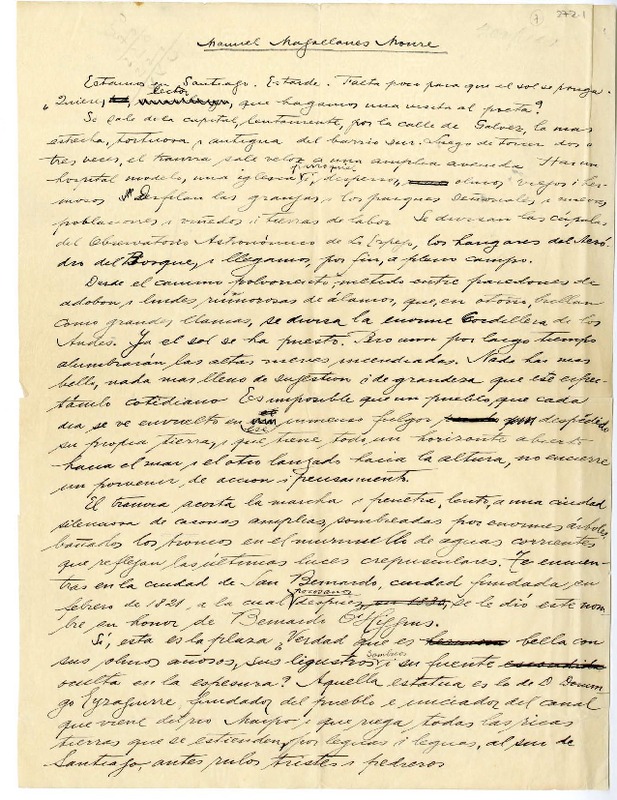 272-1
Manuel Magallanes Moure
Estamos en Santiago. Es tarde. Falta poco para que el sol se ponga.
¿Quieres, lector, que hagamos una visita al poeta?
Se sale de la capital, lentamente, por la calle de Galvez, la mas
estrecha, tortuosa i antigua del barrio sur. Luego de torcer dos o
tres veces, el tranvia sale veloz a una amplia avenida. Hai un
hospital modelo, una iglesia i, dispersos, olmos viejos i her-
mosos. Desfilan las granjas, i los parques señoriales i nuevas
poblaciones i viñedos i tierras de labor. Se divisan las cúpulas
del Observatorio Astronómico de Lo Espejo, los hangares del Aeró-
dromo del Bosque, i llegamos, por fin, a pleno campo.
Desde el camino polvoriento, metido entre paredones de
adobon i lindes rumorosas de álamos, que, en otoño, brillan
como grandes llamas, se divisa la enorme Cordillera de los
Andes. Ya el sol se ha puesto. Pero aun por largo tiempo
alumbrarán las altas nieves incendiadas. Nada hai mas
bello, nada mas lleno de sugestion i de grandeza que este espec-
táculo cotidiano. Es imposible que un pueblo, que cada
dia se ve envuelto en ese inmenso fulgor, despedido
su propia tierra, i que tiene todo un horizonte abierto
hacia el mar i el otro lanzado hacia la altura, no encierre
un porvenir de accion i pensamiento.
El tranvia acorta la marcha i penetra, lento, a una ciudad
silenciosa de casonas amplias, sombreadas por enormes árboles,
bañados los troncos en el murmull de aguas corrientes
que reflejan las últimas luces crepusculares. Te encuen-
tras en la ciudad de San Bernardo, ciudad fundada en
febrero de 1821, a la cual despues, se le dió este nom-
bre en honor de Bernardo O'Higgins.
Sí, esta es la plaza. ¿Verdad que es bella con
sus olmos añosos, sus ligustros sombríos i su fuente
oculta en la espesura? Aquella estatua es la de D. Domin-
go Eyzaguirre, fundador del pueblo e iniciador del canal
que viene del rio Maipo i que riega todas las ricas
tierras que se estienden, por leguas i leguas, al sur de
Santiago, antes rulos tristes i pedreros